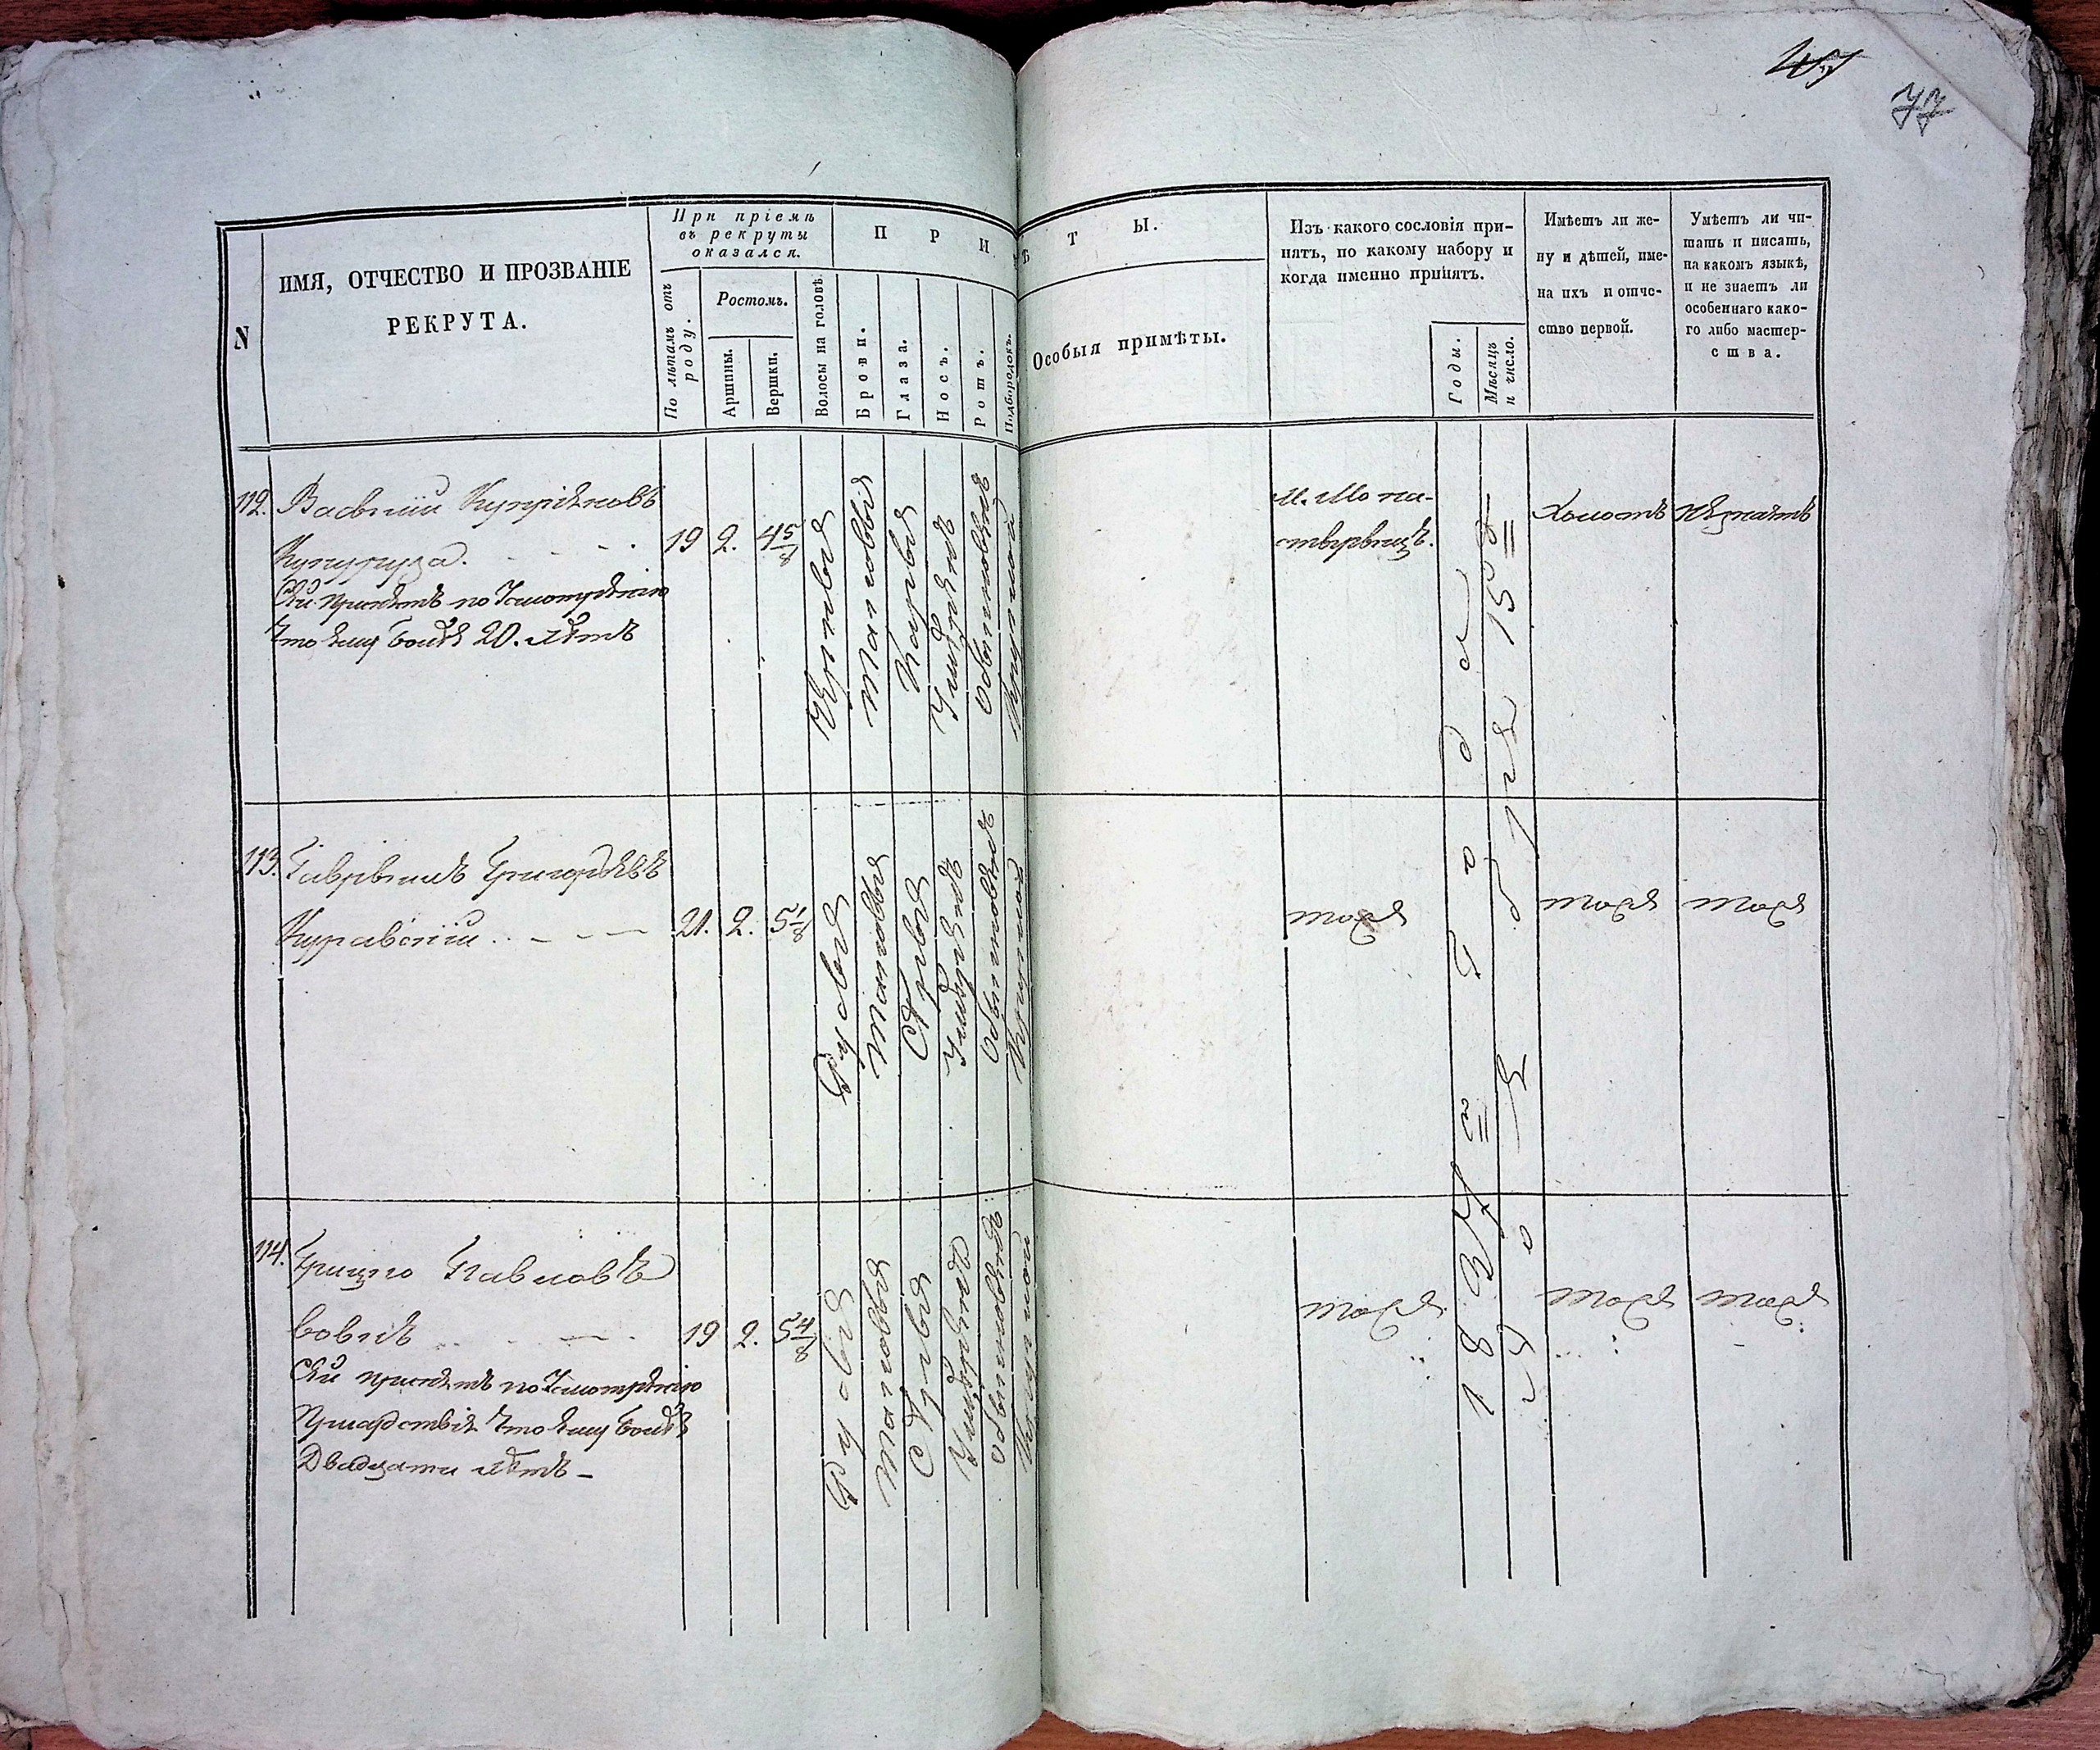 77
N
ИМЯ, ОТЧЕСТВО И ПРОЗВАНІЕ
РЕКРУТА.
При пріемѣ
въ рекруты
оказался.
По лѣтамъ отъ
роду.
Ростомъ.
Аршины.
Вершки.
П Р И М Ѣ Т Ы.
Волосы на головѣ.
Брови.
Глаза.
Носъ.
Ротъ.
Подбородокъ.
Особыя примѣты.
Изъ какого сословія при-
нятъ, по какому набору и
когда именно принятъ.
Годы.
Мѣсяцъ
и число.
Имѣетъ ли же-
ну и дѣтей, име-
на ихъ и отче-
ство первой.
Умѣетъ ли чи-
тать и писать,
на какомъ языкѣ,
и не знаетъ ли
особеннаго како-
го либо мастер-
ства.
112.
Василій Купріяновъ
Кукуруза.
Сей принятъ по усмотренію
что ему более 20. лѣтъ
19
2.
4 5/8
Черные
таковыя
Карые
Умѣренъ
обыкновенъ
Круглой
М. Мона-
стырищъ.
Холостъ
Не знаетъ
113.
Гавріилъ Григорьевъ
Журавскій
21.
2.
5 1/8
Русые
таковые
Сѣрые
Умѣренъ
обыкновенъ
Круглой
тоже
тоже
тоже
114.
Грицко Павловъ
Вовкъ
Сей принятъ по усмотренію
Присутствія что ему более
Двадцати лѣтъ
19
2.
5 4/8
Русые
таковыя
Сѣрые
Умѣренъ
обыкновенъ
Круглой
тоже
тоже
тоже
года
15